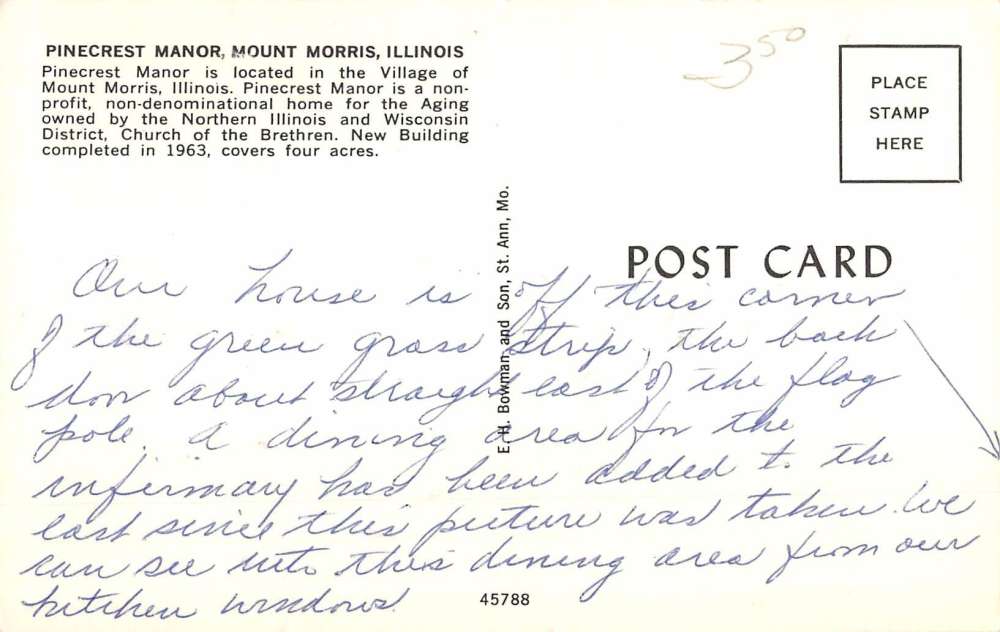 PINECREST MANOR, MOUNT MORRIS, ILLINOIS
Pinecrest Manor is located in the Village of
Mount Morris, Illinois. Pinecrest Manor is a non-
profit, non-denominational home for the Aging
owned by the Northern Illinois and Wisconsin
District, Church of the Brethren. New Building
completed in 1963, covers four acres.
3 50
PLACE
STAMP
HERE
E. H. Bowman and Son, St. Ann, Mo.
POST CARD
Our house is off this corner
of the green grass strip, the back
door about straight east of the flag
pole. A dining area for the
infirmary has been added to the
east since this picture was taken. We
can see into this dining area from our
kitchen windows.
45788